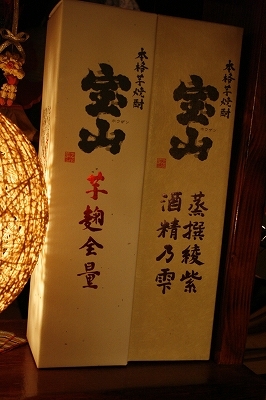 本格芋焼酎
宝山
芋麹全量
本格芋焼酎
宝山
蒸撰綾紫
酒精乃雫